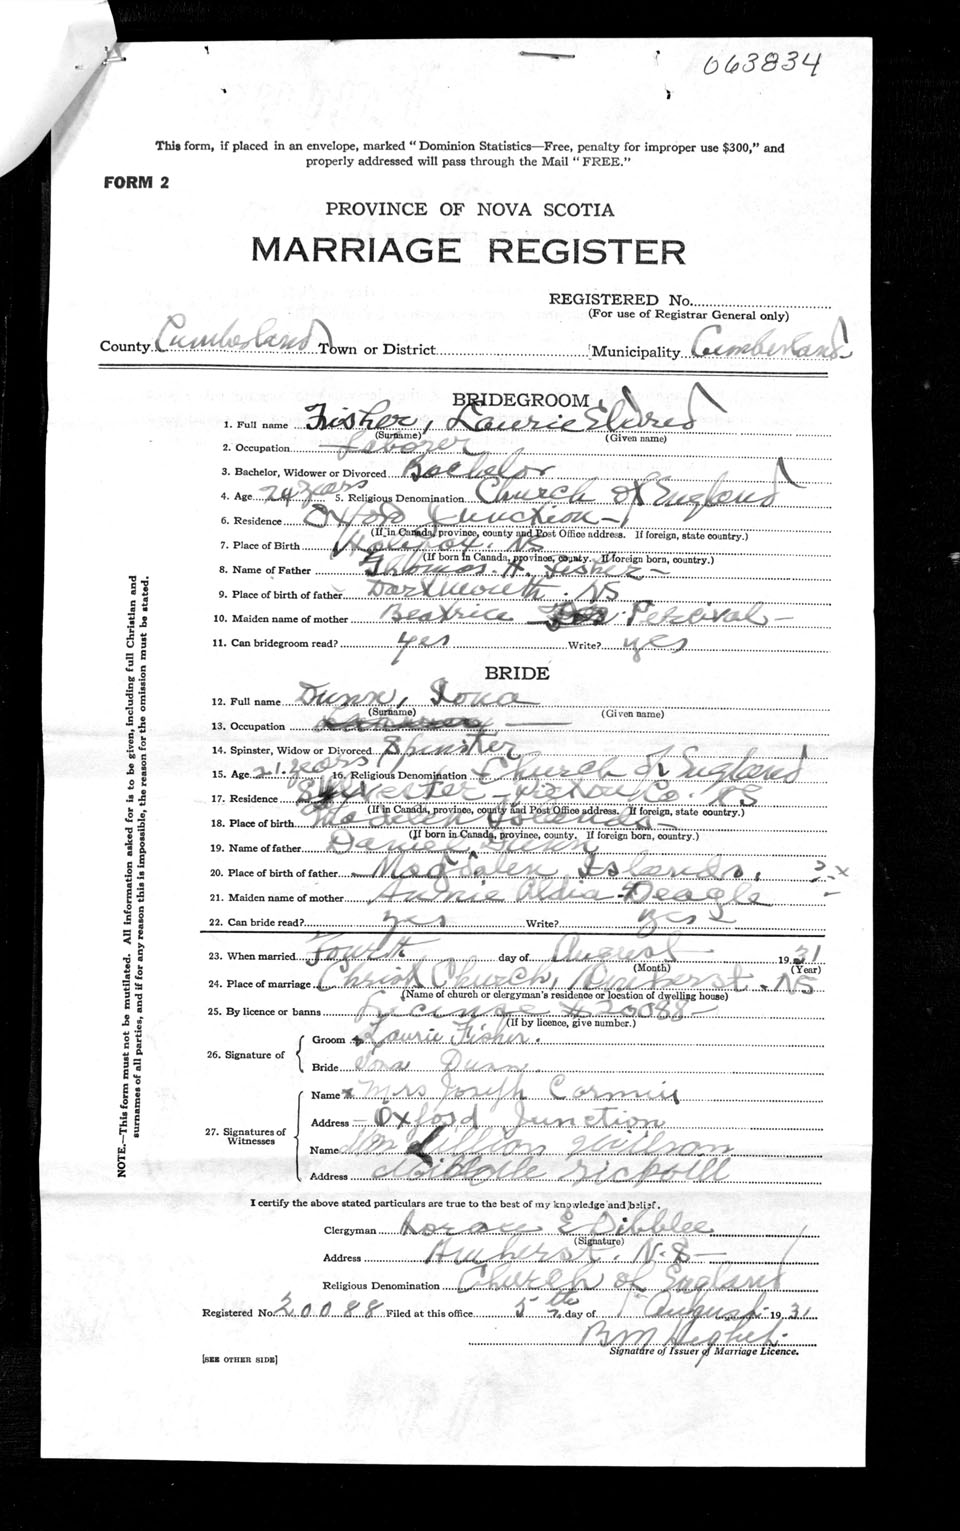 063834
This form, if placed in an envelope, marked "Dominion Statistics—Free, penalty for improper use $300," and
properly addressed will pass through the Mail "FREE."
FORM 2
PROVINCE OF NOVA SCOTIA
MARRIAGE REGISTER
REGISTERED No.
(For use of Registrar General only)
County Cumberland Town or District Municipality Cumberland
BRIDEGROOM
1. Full name Fisher, Laurie Eldred
(Surname) (Given name)
2. Occupation Laborer
3. Bachelor, Widower or Divorced Bachelor
4. Age 24 years 5. Religious Denomination Church of England
6. Residence Oxford Junction
(If in Canada, province, county and Post Office address. If foreign, state country.)
7. Place of Birth Halifax. NS
(If born in Canada, province, county. If foreign born, country.)
8. Name of Father Thomas. A. Fisher
9. Place of birth of father Dartmouth. NS
10. Maiden name of mother Beatrice Percival
11. Can bridegroom read? yes Write? yes
BRIDE
12. Full name Dunn, Iona
(Surname) (Given name)
13. Occupation
14. Spinster, Widow or Divorced Spinster
15. Age 21 years 16. Religious Denomination Church of England
17. Residence Sylvester - Pictou Co. NS
(If in Canada, province, county and Post Office address. If foreign, state country.)
18. Place of birth Magdalen Islands
(If born in Canada, province, county. If foreign born, country.)
19. Name of father Daniel Dunn
20. Place of birth of father Magdalen Islands.
21. Maiden name of mother Annie Deagle
22. Can bride read? yes Write? yes
23. When married Fourth day of August 1931
(Month) (Year)
24. Place of marriage Christ Church, Amherst. NS
(Name of church or clergyman's residence or location of dwelling house)
25. By licence or banns License 20088
(If by licence, give number.)
26. Signature of
Groom Laurie Fisher.
Bride Iona Dunn
27. Signatures of Witnesses
Name Mrs Joseph Cormier
Address Oxford Junction
Name Lillian
Address
I certify the above stated particulars are true to the best of my knowledge and belief.
Clergyman Horace E Dibblee
(Signature)
Address Amherst. N.S
Religious Denomination Church of England
Registered No. 20088 Filed at this office 5th day of August 1931
Signature of Issuer of Marriage Licence.
[SEE OTHER SIDE]
NOTE.—This form must not be mutilated. All information asked for is to be given, including full Christian and
surnames of all parties, and if for any reason this is impossible, the reason for the omission must be stated.